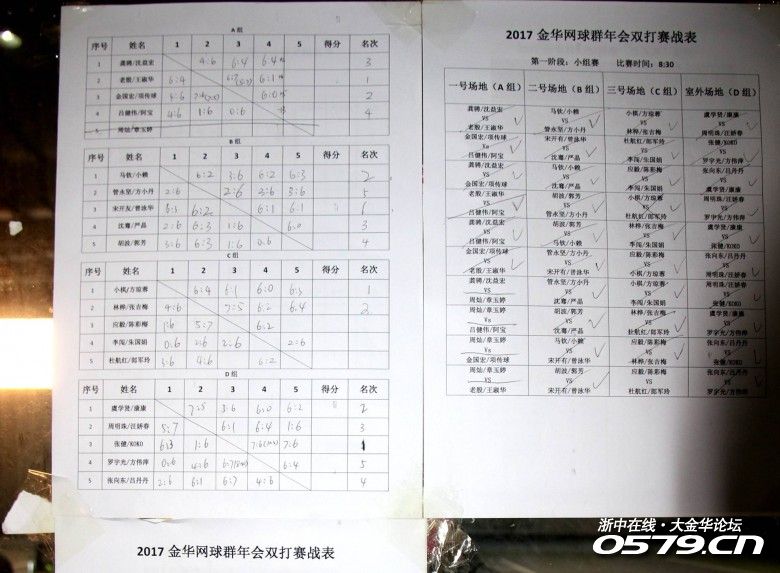 A 组
序号 姓名 1 2 3 4 5 得分 名次
1 龚骋/沈益宏 4:6 6:4 6:4 3
2 老殷/王淑华 6:4 6:1 1
3 金国宏/项传球 4:6 6:0 2
4 吕健伟/阿宝 4:6 1:6 0:6 4
5 周灿/章玉婷
B 组
序号 姓名 1 2 3 4 5 得分 名次
1 马钦/小赖 6:2 3:6 6:2 6:3 2
2 管永坚/方小丹 2:6 2:6 3:6 3:6 5
3 宋开友/曾泳华 6:3 6:2 6:1 6:1 1
4 沈骞/严晶 2:6 6:3 1:6 6:0 3
5 胡波/郭芳 3:6 6:3 1:6 0:6 4
C 组
序号 姓名 1 2 3 4 5 得分 名次
1 小棋/方琼蓉 6:4 6:1 6:0 6:3 1
2 林桦/张吉梅 4:6 7:5 6:2 6:4 2
3 应毅/陈彩梅 1:6 5:7 6:2
4 李闯/朱国娟 0:6 2:6 2:6 2:6
5 杜航红/郎军玲 3:6 4:6 6:2
D 组
序号 姓名 1 2 3 4 5 得分 名次
1 虞学贤/康康 7:5 3:6 6:0 6:2 2
2 周明珠/汪娇春 5:7 6:1 6:4 1:6 3
3 张健/KOKO 6:3 1:6 7:6 7:6 1
4 罗宇光/方伟萍 0:6 4:6 6:7 6:4 5
5 张向东/吕丹丹 2:6 6:1 6:7 4:6 4
2017 金华网球群年会双打赛战表
2017 金华网球群年会双打赛战表
第一阶段：小组赛 比赛时间：8:30
一号场地（A 组） 二号场地（B 组） 三号场地（C 组） 室外场地（D 组）
龚骋/沈益宏 马钦/小赖 小棋/方琼蓉 虞学贤/康康
VS VS VS VS
老殷/王淑华 管永坚/方小丹 林桦/张吉梅 周明珠/汪娇春
金国宏/项传球 宋开有/曾泳华 杜航红/郎军玲 张健/KOKO
Vs VS VS VS
吕健伟/阿宝 沈骞/严晶 李闯/朱国娟 罗宇光/方伟萍
龚骋/沈益宏 马钦/小赖 应毅/陈彩梅 张向东/吕丹丹
VS VS VS VS
金国宏/项传球 沈骞/严晶 李闯/朱国娟 虞学贤/康康
老殷/王淑华 胡波/郭芳 小棋/方琼蓉 周明珠/汪娇春
VS VS VS VS
吕健伟/阿宝 管永坚/方小丹 杜航红/郎军玲 罗宇光/方伟萍
龚骋/沈益宏 胡波/郭芳 林桦/张吉梅 虞学贤/康康
VS VS VS VS
吕健伟/阿宝 马钦/小赖 李闯/朱国娟 张健/KOKO
金国宏/项传球 管永坚/方小丹 应毅/陈彩梅 张向东/吕丹丹
VS VS VS VS
老殷/王淑华 宋开有/曾泳华 小棋/方琼蓉 周明珠/汪娇春
龚骋/沈益宏 管永坚/方小丹 小棋/方琼蓉 周明珠/汪娇春
VS VS VS VS
周灿/章玉婷 沈骞/严晶 李闯/朱国娟 张健/KOKO
周灿/章玉婷 胡波/郭芳 林桦/张吉梅 虞学贤/康康
Vs VS VS VS
吕健伟/阿宝 沈骞/严晶 杜航红/郎军玲 罗宇光/方伟萍
周灿/章玉婷 马钦/小赖 应毅/陈彩梅 张向东/吕丹丹
VS VS VS VS
金国宏/项传球 宋开有/曾泳华 林桦/张吉梅 张健/KOKO
周灿/章玉婷 胡波/郭芳 应毅/陈彩梅 张向东/吕丹丹
VS VS VS VS
老殷/王淑华 宋开有/曾泳华 杜航红/郎军玲 罗宇光/方伟萍
浙中在线·大金华论坛
0579.cn